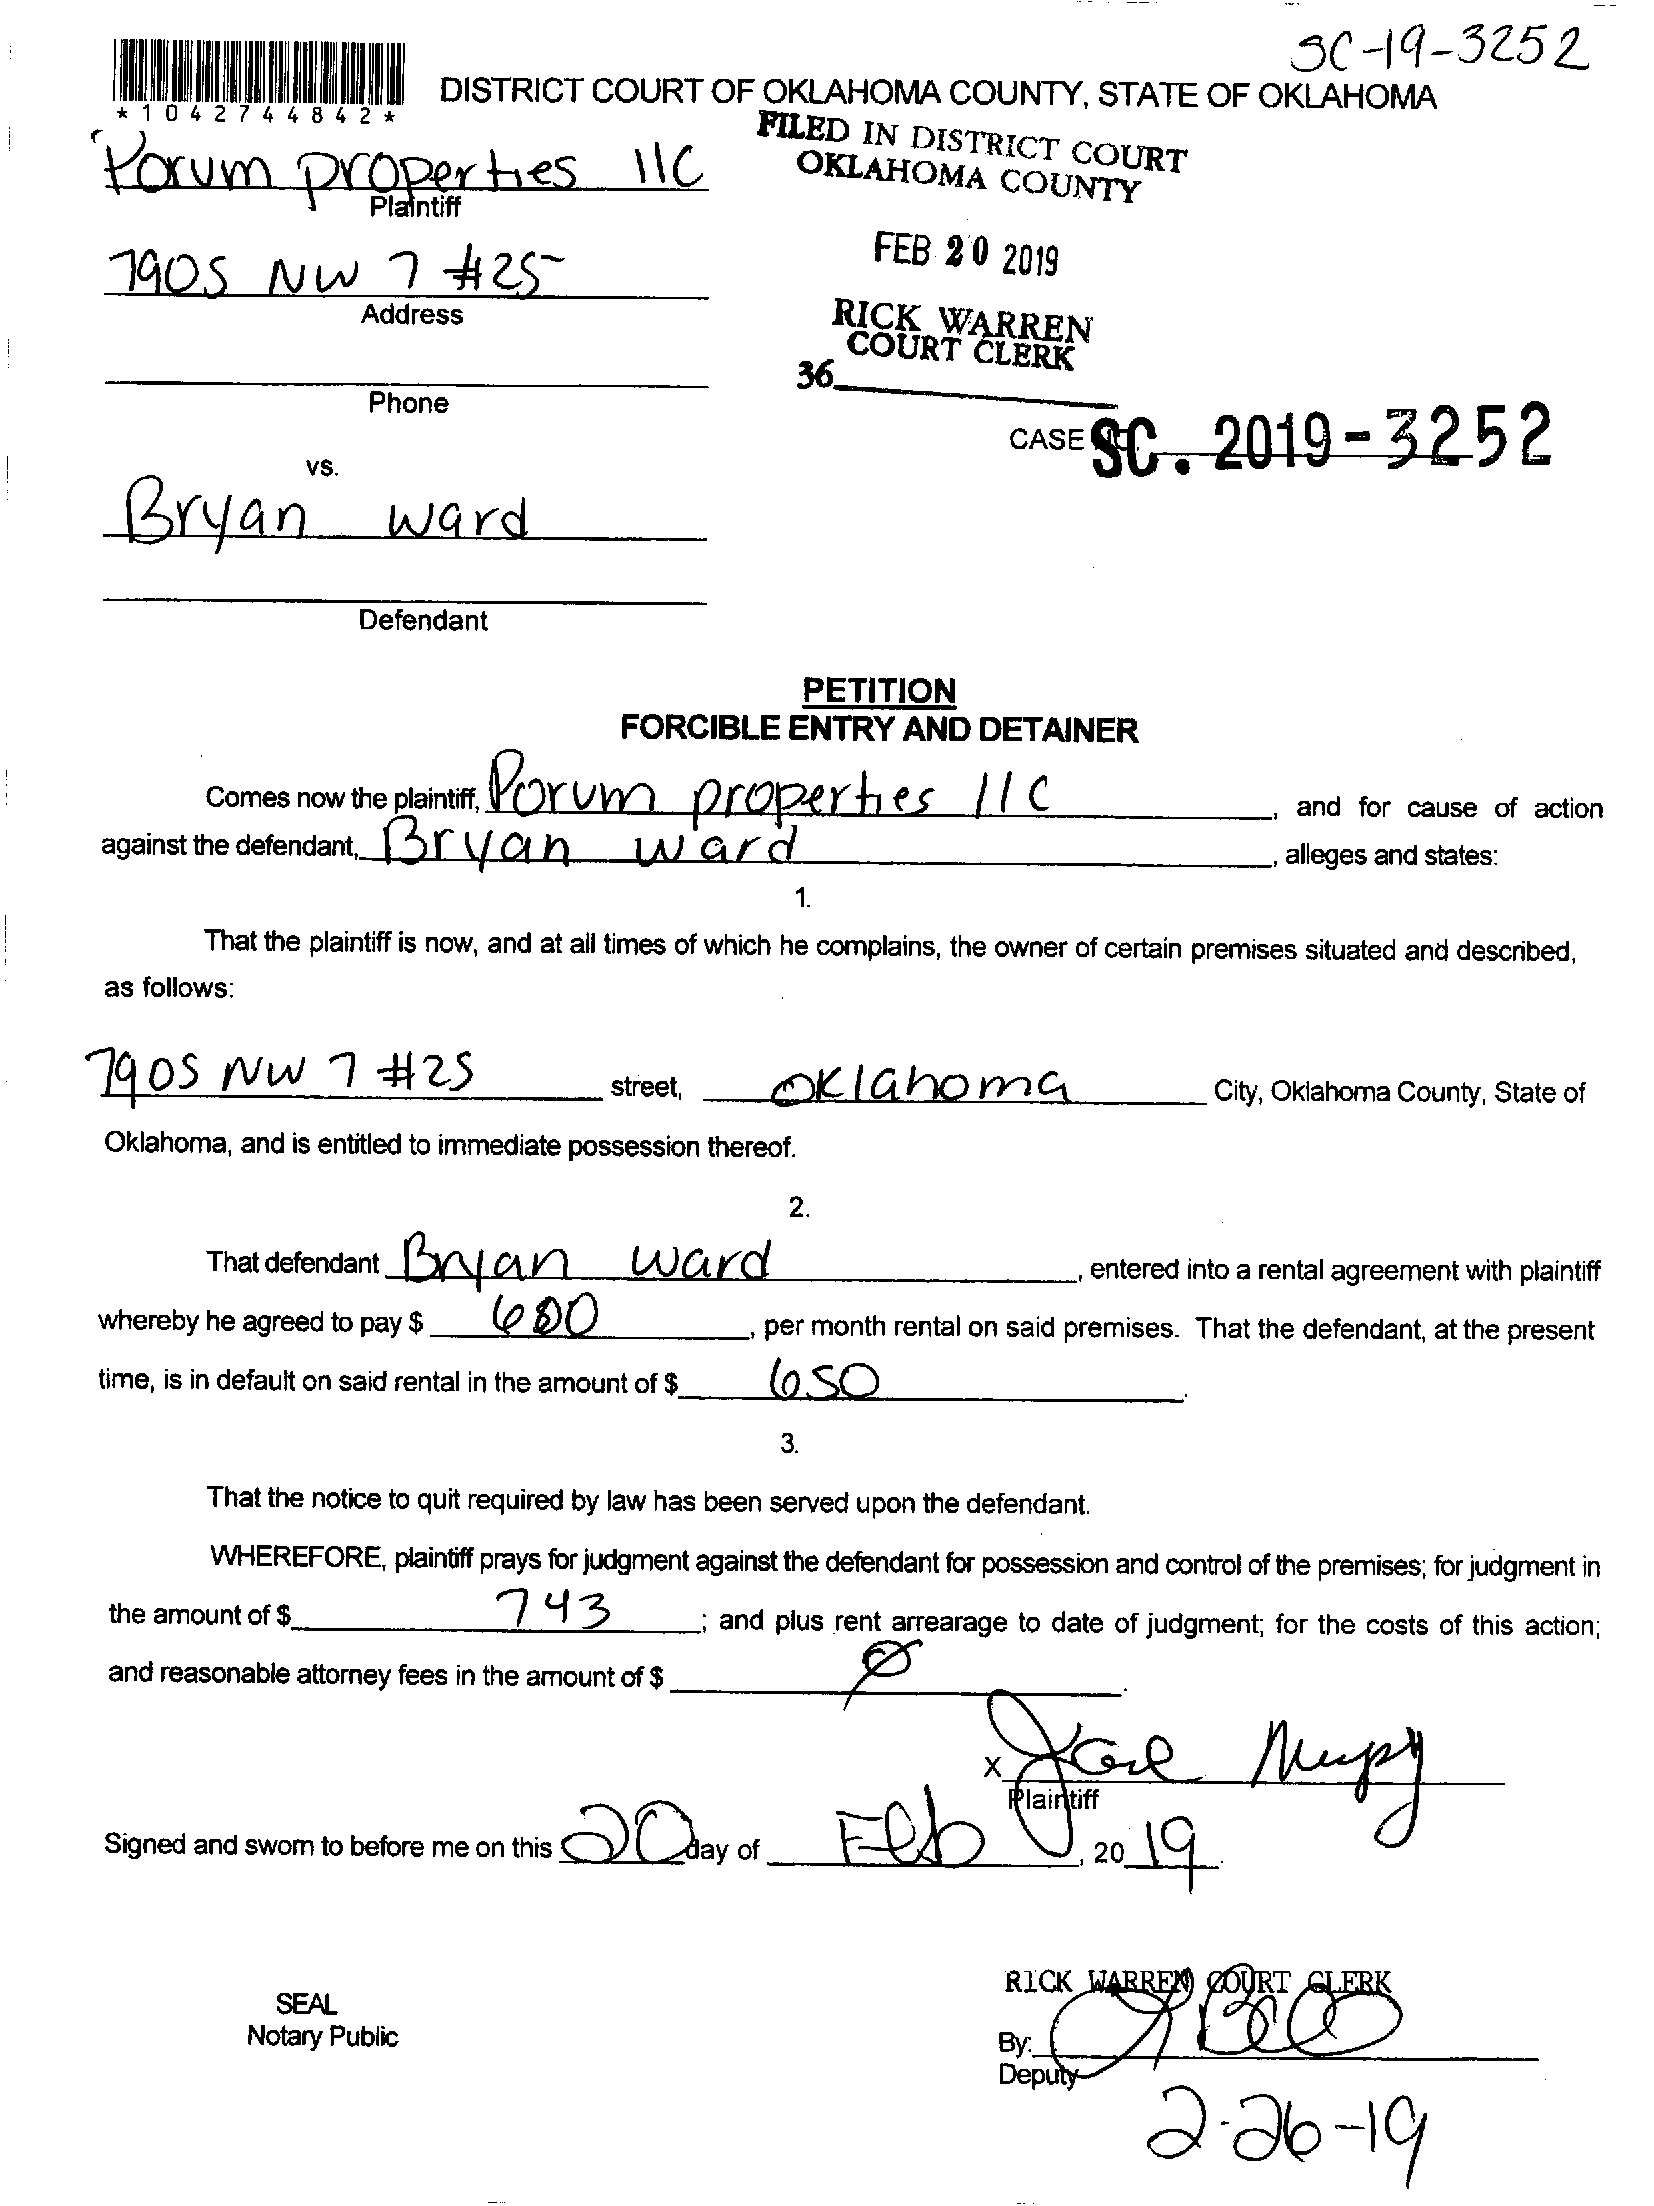 SC-19-3252
*1042744842*
DISTRICT COURT OF OKLAHOMA COUNTY, STATE OF OKLAHOMA
FILED IN DISTRICT COURT
OKLAHOMA COUNTY
Porum properties llC
Plaintiff
FEB 20 2019
7905 NW 7 #25
Address
RICK WARREN
COURT CLERK
36
Phone
CASE SC. 2019-3252
vs.
Bryan Ward
Defendant
PETITION
FORCIBLE ENTRY AND DETAINER
Comes now the plaintiff, Porum properties llC, and for cause of action
against the defendant, Bryan Ward, alleges and states:
1.
That the plaintiff is now, and at all times of which he complains, the owner of certain premises situated and described,
as follows:
7905 NW 7 #25 street, Oklahoma City, Oklahoma County, State of
Oklahoma, and is entitled to immediate possession thereof.
2.
That defendant Bryan Ward, entered into a rental agreement with plaintiff
whereby he agreed to pay $ , per month rental on said premises. That the defendant, at the present
time, is in default on said rental in the amount of $ 650.
3.
That the notice to quit required by law has been served upon the defendant.
WHEREFORE, plaintiff prays for judgment against the defendant for possession and control of the premises; for judgment in
the amount of $ 743; and plus rent arrearage to date of judgment; for the costs of this action;
and reasonable attorney fees in the amount of $ Ø.
X
Plaintiff
Signed and sworn to before me on this 20 day of Feb, 2019.
RICK WARREN COURT CLERK
SEAL
Notary Public
By:
Deputy
2-26-19